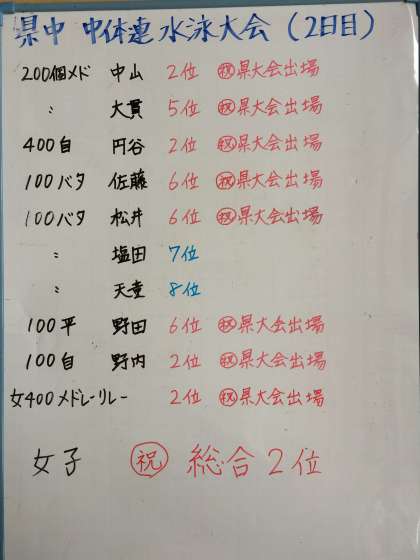 県中 中体連 水泳大会 (2日目)
200個メド 中山 2位 ㊗県大会出場
〃 大貫 5位 ㊗県大会出場
400自 円谷 2位 ㊗県大会出場
100バタ 佐藤 6位 ㊗県大会出場
100バタ 松井 6位 ㊗県大会出場
〃 塩田 7位
〃 天童 8位
100平 野田 6位 ㊗県大会出場
100自 野内 2位 ㊗県大会出場
女400メドレーリレー 2位 ㊗県大会出場
女子 ㊗ 総合2位